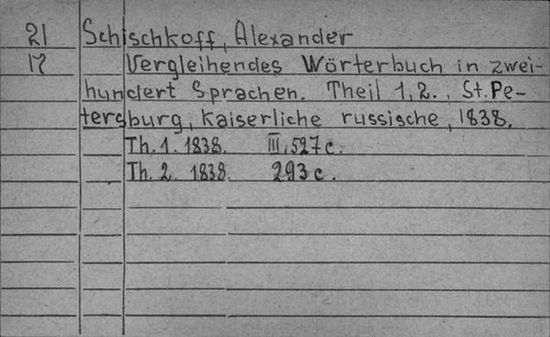 21 Schischkoff, Alexander
17 Vergleihendes Wörterbuch in zwei-
hundert Sprachen. Theil 1,2., St.Pe-
tersburg, Kaiserliche russische, 1838.
Th. 1. 1838. III, 527 c.
Th. 2. 1838. 293 c.